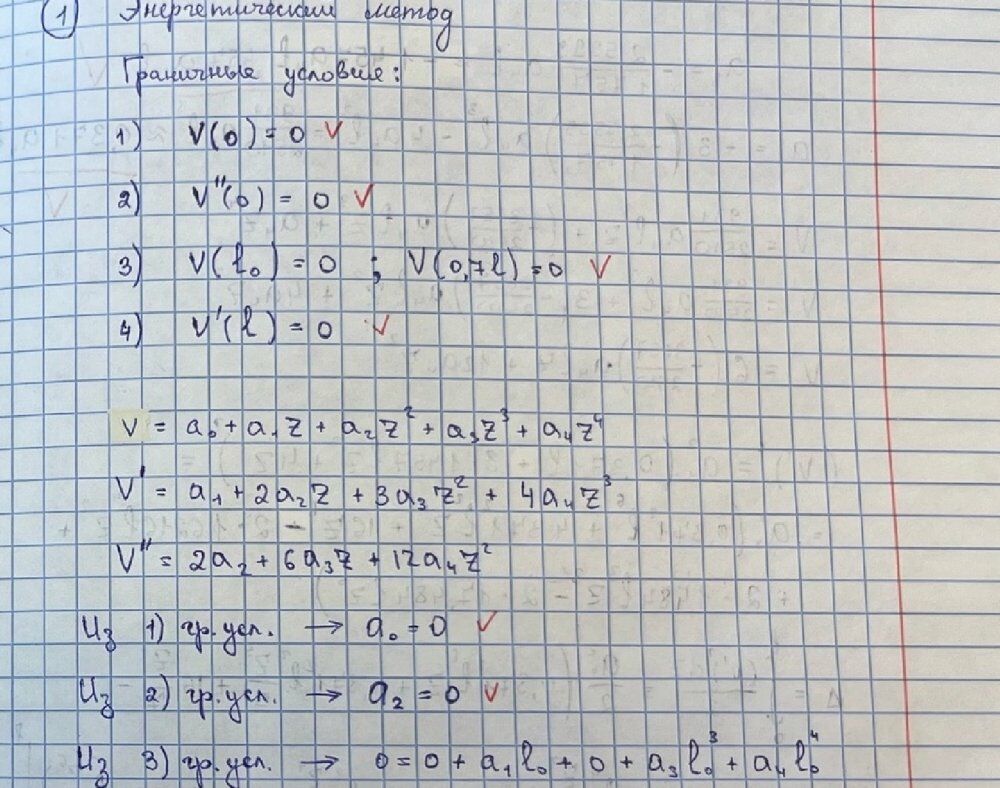 1 Энергетический метод
Граничные условия:
1) V(0) = 0 V
2) V"(0) = 0 V
3) V(l₀) = 0 ; V(0,7l) = 0 V
4) V'(l) = 0 V
V = a₀ + a₁z + a₂z² + a₃z³ + a₄z⁴
V' = a₁ + 2a₂z + 3a₃z² + 4a₄z³
V" = 2a₂ + 6a₃z + 12a₄z²
Из 1) гр.усл. → a₀ = 0 V
Из 2) гр.усл. → a₂ = 0 V
Из 3) гр.усл. → 0 = 0 + a₁l₀ + 0 + a₃l₀³ + a₄l₀⁴